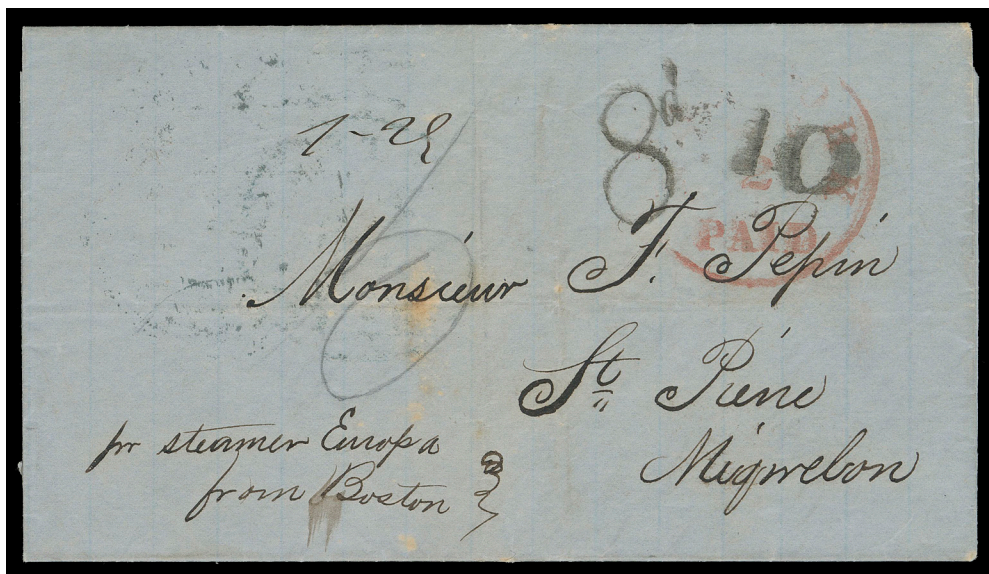 1-29
8d 10
2
PAID
Monsieur F. Pépin
St Piére
Miqwelon
pr steamer Europa
from Boston